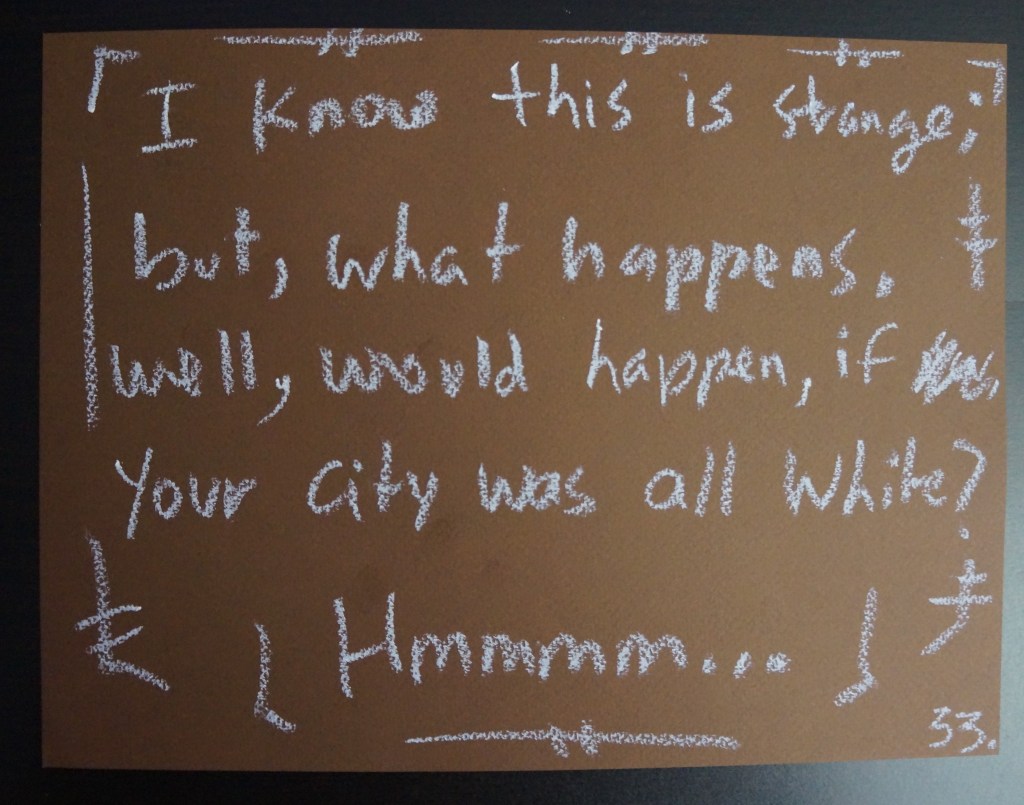 I know this is strange;
but, what happens.
well, would happen, if
your city was all white?
Hmmmmm...
33.